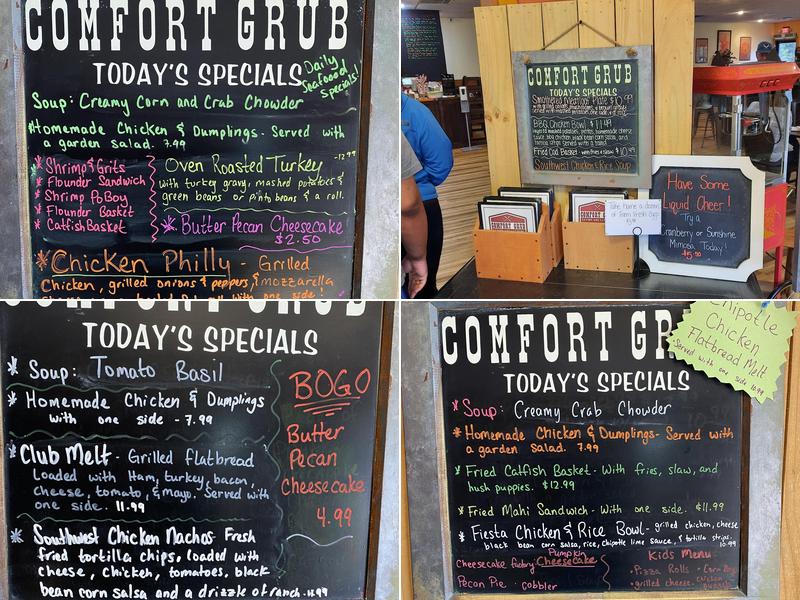 COMFORT GRUB
TODAY'S SPECIALS
Daily
Seafood
Specials!
Soup: Creamy Corn and Crab Chowder
*Homemade Chicken & Dumplings - Served with
a garden salad. 7.99
* Shrimp & Grits
* Flounder Sandwich
* Shrimp PoBoy
* Flounder Basket
* Catfish Basket
Oven Roasted Turkey -12.99
with turkey gravy, mashed potatoes &
green beans or pinto beans & a roll.
* Butter Pecan Cheesecake
$2.50
*Chicken Philly - Grilled
Chicken, grilled onions & peppers, & mozzarella
COMFORT GRUB
TODAY'S SPECIALS
Smothered Meatloaf Plate $10.99
BBQ Chicken Bowl - $11.49
Fried Cod Basket - with fries & slaw $10.99
Southwest Chicken & Rice Soup
COMFORT GRUB
Take home a dozen
of Farm Fresh Eggs
Have Some
Liquid Cheer!
Try a
Cranberry or Sunshine
Mimosa Today!
$5.00
COMFORT GRUB
TODAY'S SPECIALS
* Soup: Tomato Basil
* Homemade Chicken & Dumplings
with one side - 7.99
* Club Melt - Grilled flatbread
Loaded with Ham, turkey, bacon,
cheese, tomato, & mayo. Served with
one side. 11.99
* Southwest Chicken Nachos Fresh
fried tortilla chips, loaded with
cheese, chicken, tomatoes, black
bean corn salsa and a drizzle of ranch. 11.99
BOGO
Butter
Pecan
Cheesecake
4.99
COMFORT GR
TODAY'S SPECIALS
Chipotle
Chicken
Flatbread Melt
Served with one side 10.99
* Soup: Creamy Crab Chowder
* Homemade Chicken & Dumplings - Served with
a garden salad. 7.99
* Fried Catfish Basket - With fries, slaw, and
hush puppies. $12.99
* Fried Mahi Sandwich - With one side. $11.99
* Fiesta Chicken & Rice Bowl - grilled chicken, cheese
black bean corn salsa, rice, chipotle lime sauce, & tortilla strips.
10.99
Pumpkin
Cheesecake factory Cheesecake
Pecan Pie - cobbler
Kids Menu
• Pizza Rolls • Corn Dog
• grilled cheese • Chicken